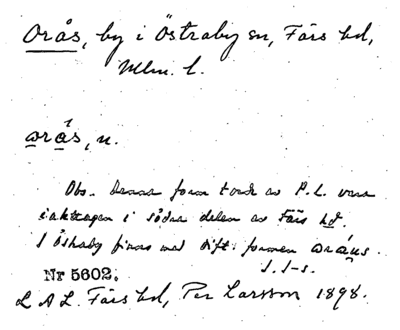 Orås, by i Östraby sn, Färs hd,
Mlm. l.
orås, n.
Obs. Denna form torde av P. L. vara
iakttagen i södra delen av Färs hd.
I Östraby finns med dift. formen
Nr 5602.
L A L. Färs hd, Per Larsson 1898.